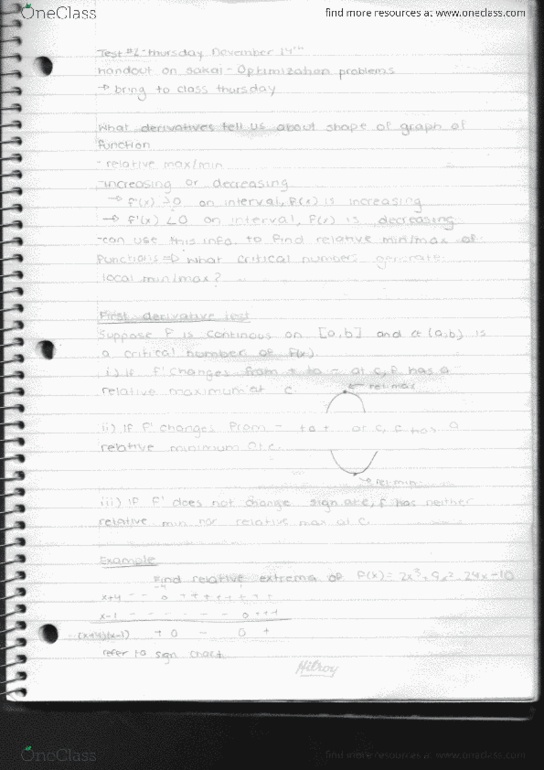 OneClass
find more resources at www.oneclass.com
Test #2-thursday November 14th
handout on sakai - Optimization problems
→ bring to class thursday
What derivatives tell us about shape of graph of
function
- relative max/min
-increasing or decreasing
→ f'(x) >0 on interval, f(x) is increasing
→ f'(x) <0 on interval, f(x) is decreasing
-can use this info. to find relative min/max of
functions => what critical numbers generate
local min/max?
First derivative test
Suppose f is continous on [a,b] and c∈(a,b) is
a critical number of f(x)
i) If f' changes from + to - at c, f has a
relative maximum at c.
rel max
ii) If f' changes from - to + at c, f has a
relative minimum at c.
rel min
iii) If f' does not change sign at c, f has neither
relative min nor relative max at c.
Example
Find relative extrema of f(x) = 2x³+9x²-24x-10
x+4 - - 0 + + + + + + +
x-1 - - - - - - 0 + + +
(x+4)(x-1) + 0 - 0 +
refer to sign chart
Hilroy
OneClass
find more resources at www.oneclass.com